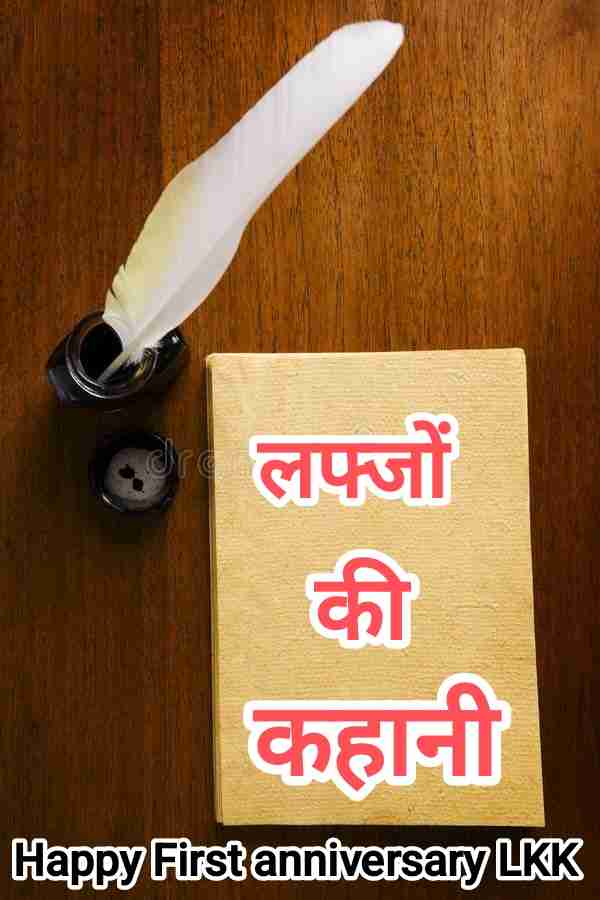 लफ्जों
की
कहानी
Happy First anniversary LKK